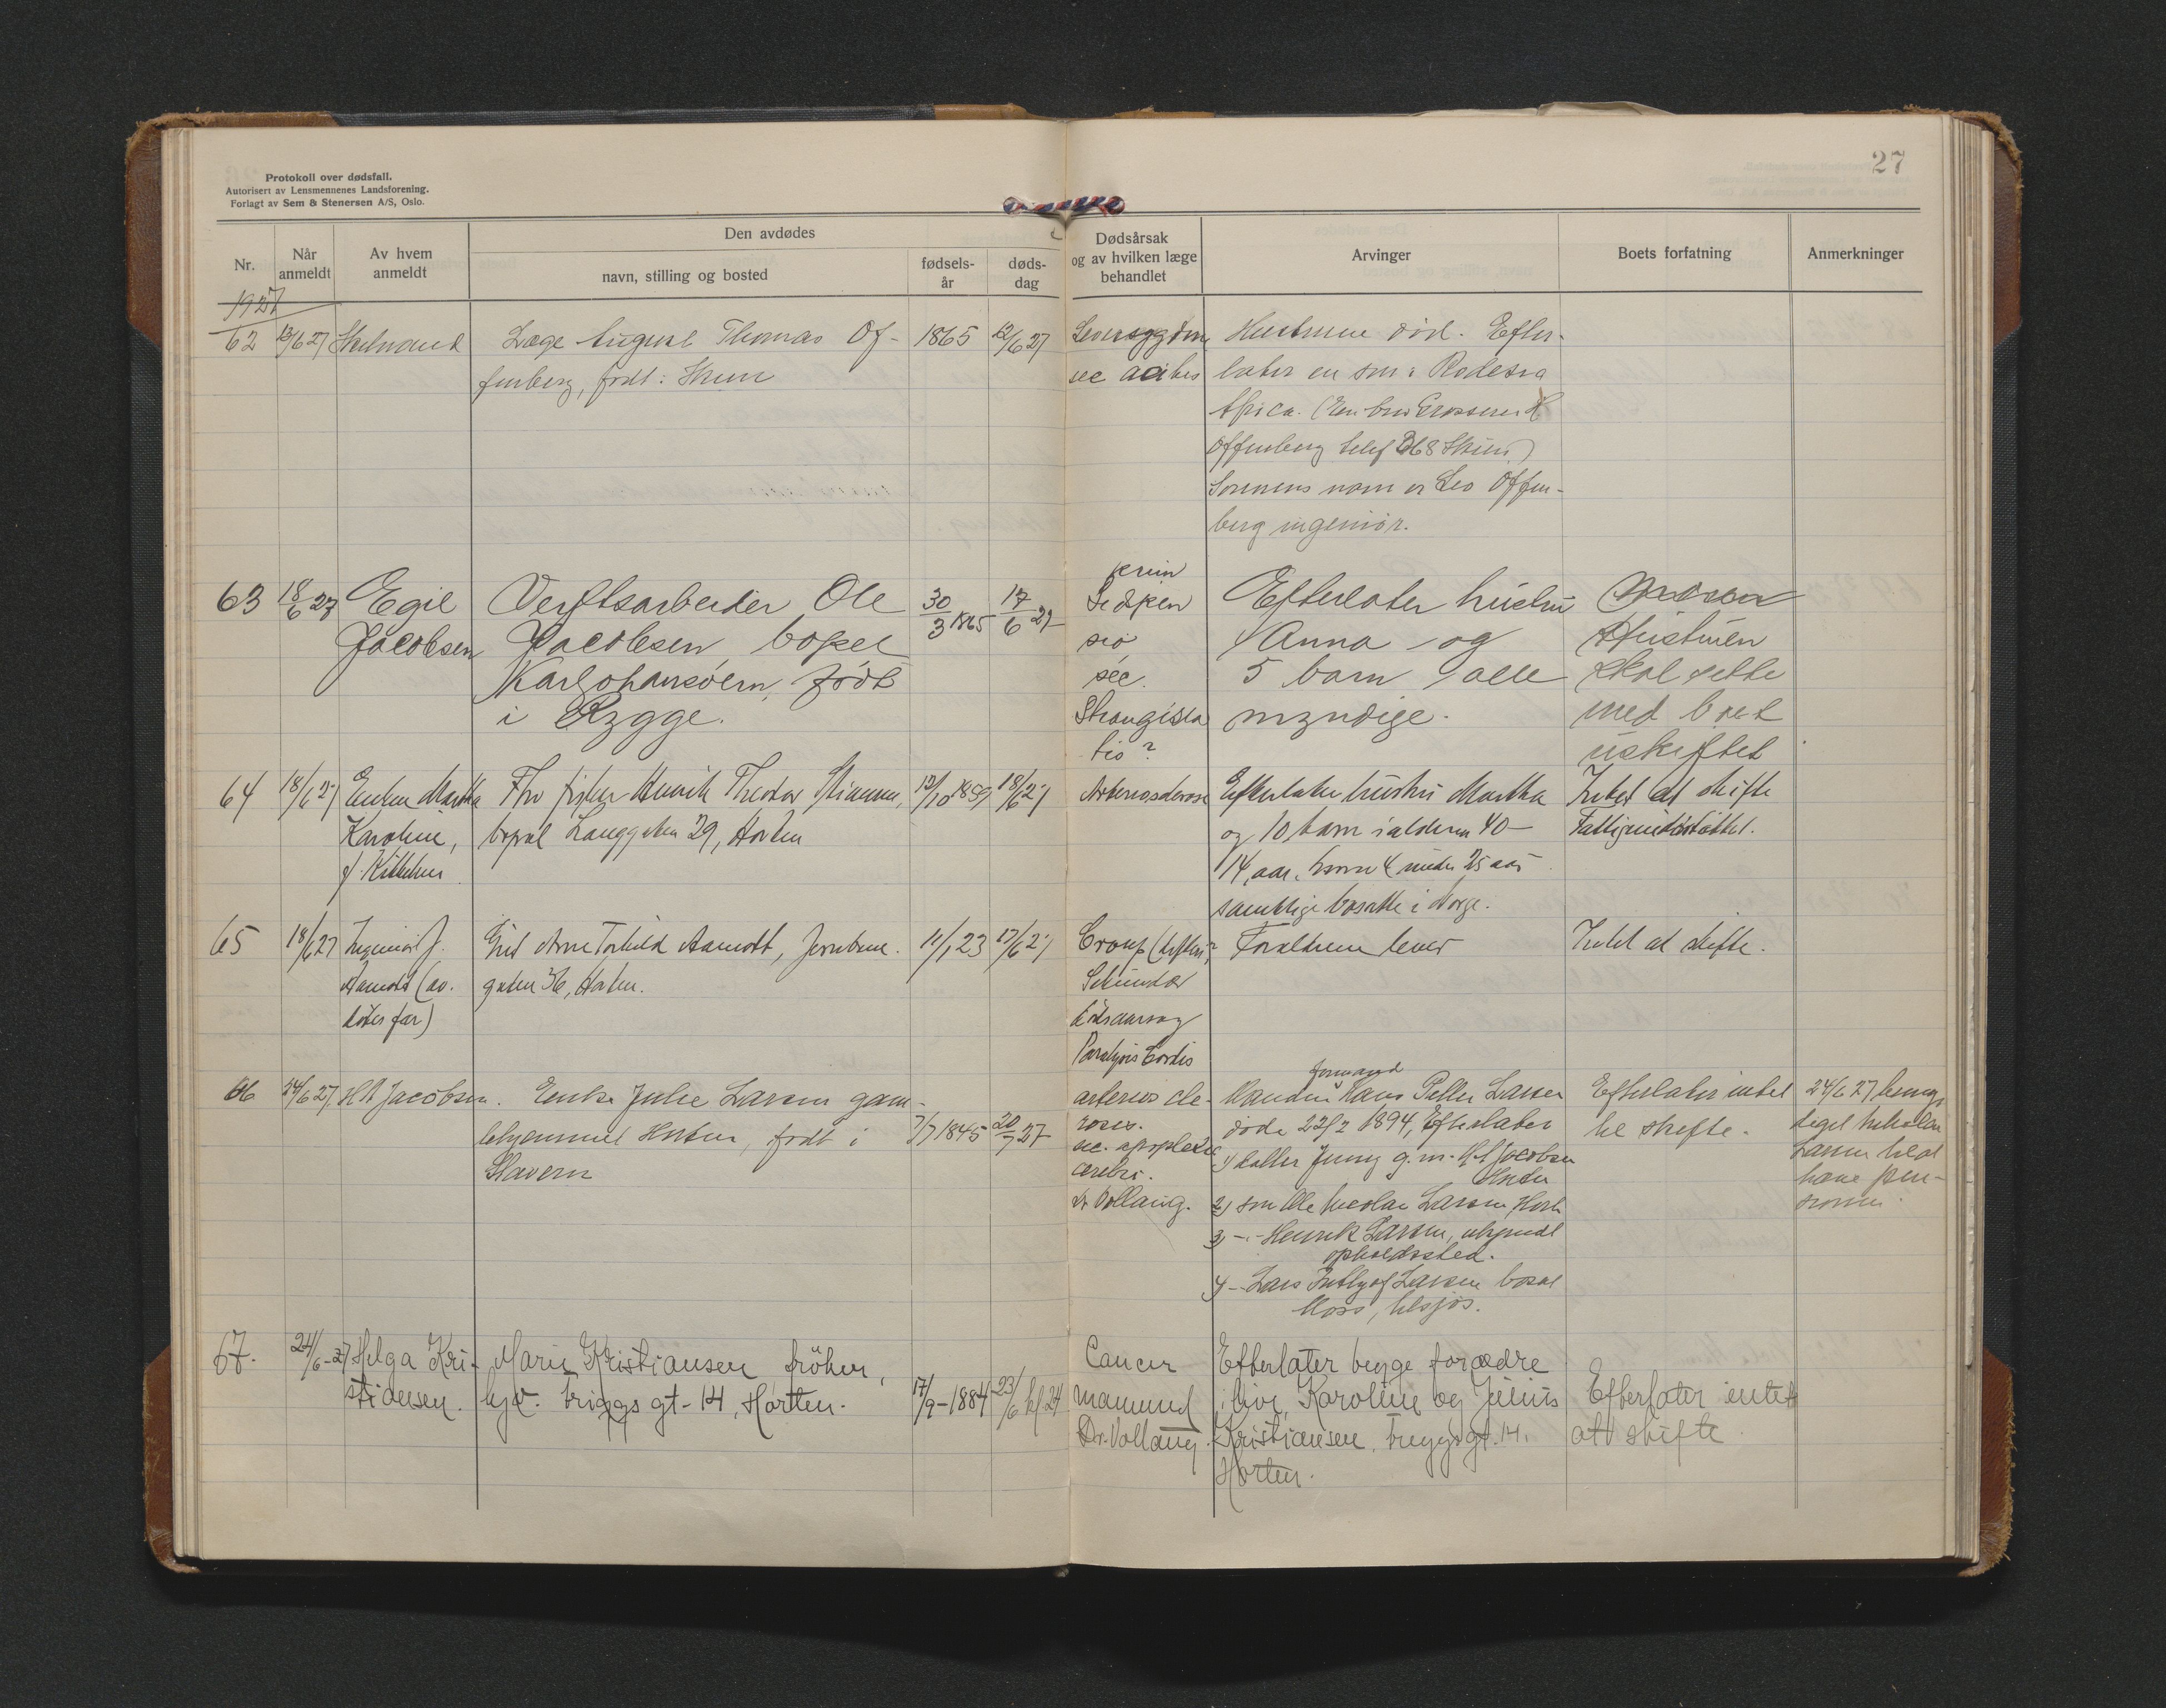 27
Protokoll over dødsfall.
Autorisert av Lensmennenes Landsforening.
Forlagt av Sem & Stenersen A/S, Oslo.
Nr.
Når anmeldt
Av hvem anmeldt
Den avdødes
navn, stilling og bosted
fødselsår
dødsdag
Dødsårsak og av hvilken læge behandlet
Arvinger
Boets forfatning
Anmerkninger
1927
62 13/6 27
Læge August Thomas Of-
fenberg, født: Skien
1865
12/6 27
Hustruen død. Efter-
later en søn i Rodesia
Africa. (En bror Grosserer H
Offenberg telef 368 Skien)
Sønnens navn er Leo Offen-
berg ingeniør.
63 18/6 27
Egil
Jacobsen
Verftsarbeider Ole
Jacobsen bopel
Karljohansvern, født
i Rygge.
30/3 1865
17/6 27
sio
sec.
Strangula
tio?
Efterlater hustru
Anna og
5 barn alle
myndige.
Hustruen
skal sitte
med boet
uskiftet
64 18/6 27
Enken Martha
Karoline,
f. Kittelsen
Fhv fisker Henrik Theodor
bopæl Langgaten 29, Horten
12/10 1859
18/6 27
Arteriosclerose
Efterlater hustru Martha
og 10 barn i alderen 40–
14 aar, hvorav 4 under 25 aar
samtlige bosatte i Norge.
Intet at skifte
Fattigunderstøttet.
65 18/6 27
Ingeniør J.
Aamodt (av-
dødes far)
Arne Torkild Aamodt, Jernbane-
gaten 36, Horten.
11/1 23
17/6 27
Croup
Sekundær
dødsaarsag
Paralysis Cordis
Forældrene lever
Intet at skifte.
66 24/6 27
H A Jacobsen.
Enke Julie Larsen gam-
lehjemmet Horten, født i
Stavern
7/7 1845
20/7 27
arterioscle-
rosis.
sec. apoplexia
cerebri.
Dr Vollaug.
formand
Manden Hans Petter Larsen
døde 22/2 1894, Efterlater
1) datter Jenny g. m. H A Jacobsen
Horten
2) søn Ole Nicolai Larsen Horten
3) –"– Henrik Larsen, ukjendt
opholdssted.
4) – Lars Larsen bosat
Moss, tilsjøs.
Efterlater intet
til skifte.
24/6 27
Larsen til at
hæve pen-
sionen.
67. 24/6-27
Helga Kri-
stiansen.
Marie Kristiansen, frøken,
hjv. Briggs gt- 14, Horten.
17/9-1884
23/6 kl 24
Cancer
mamma
Dr. Vollaug.
Efterlater begge forædre
i live, Karoline og Julius
Kristiansen, Briggs gt. 14.
Horten.
Efterlater intet
att skifte